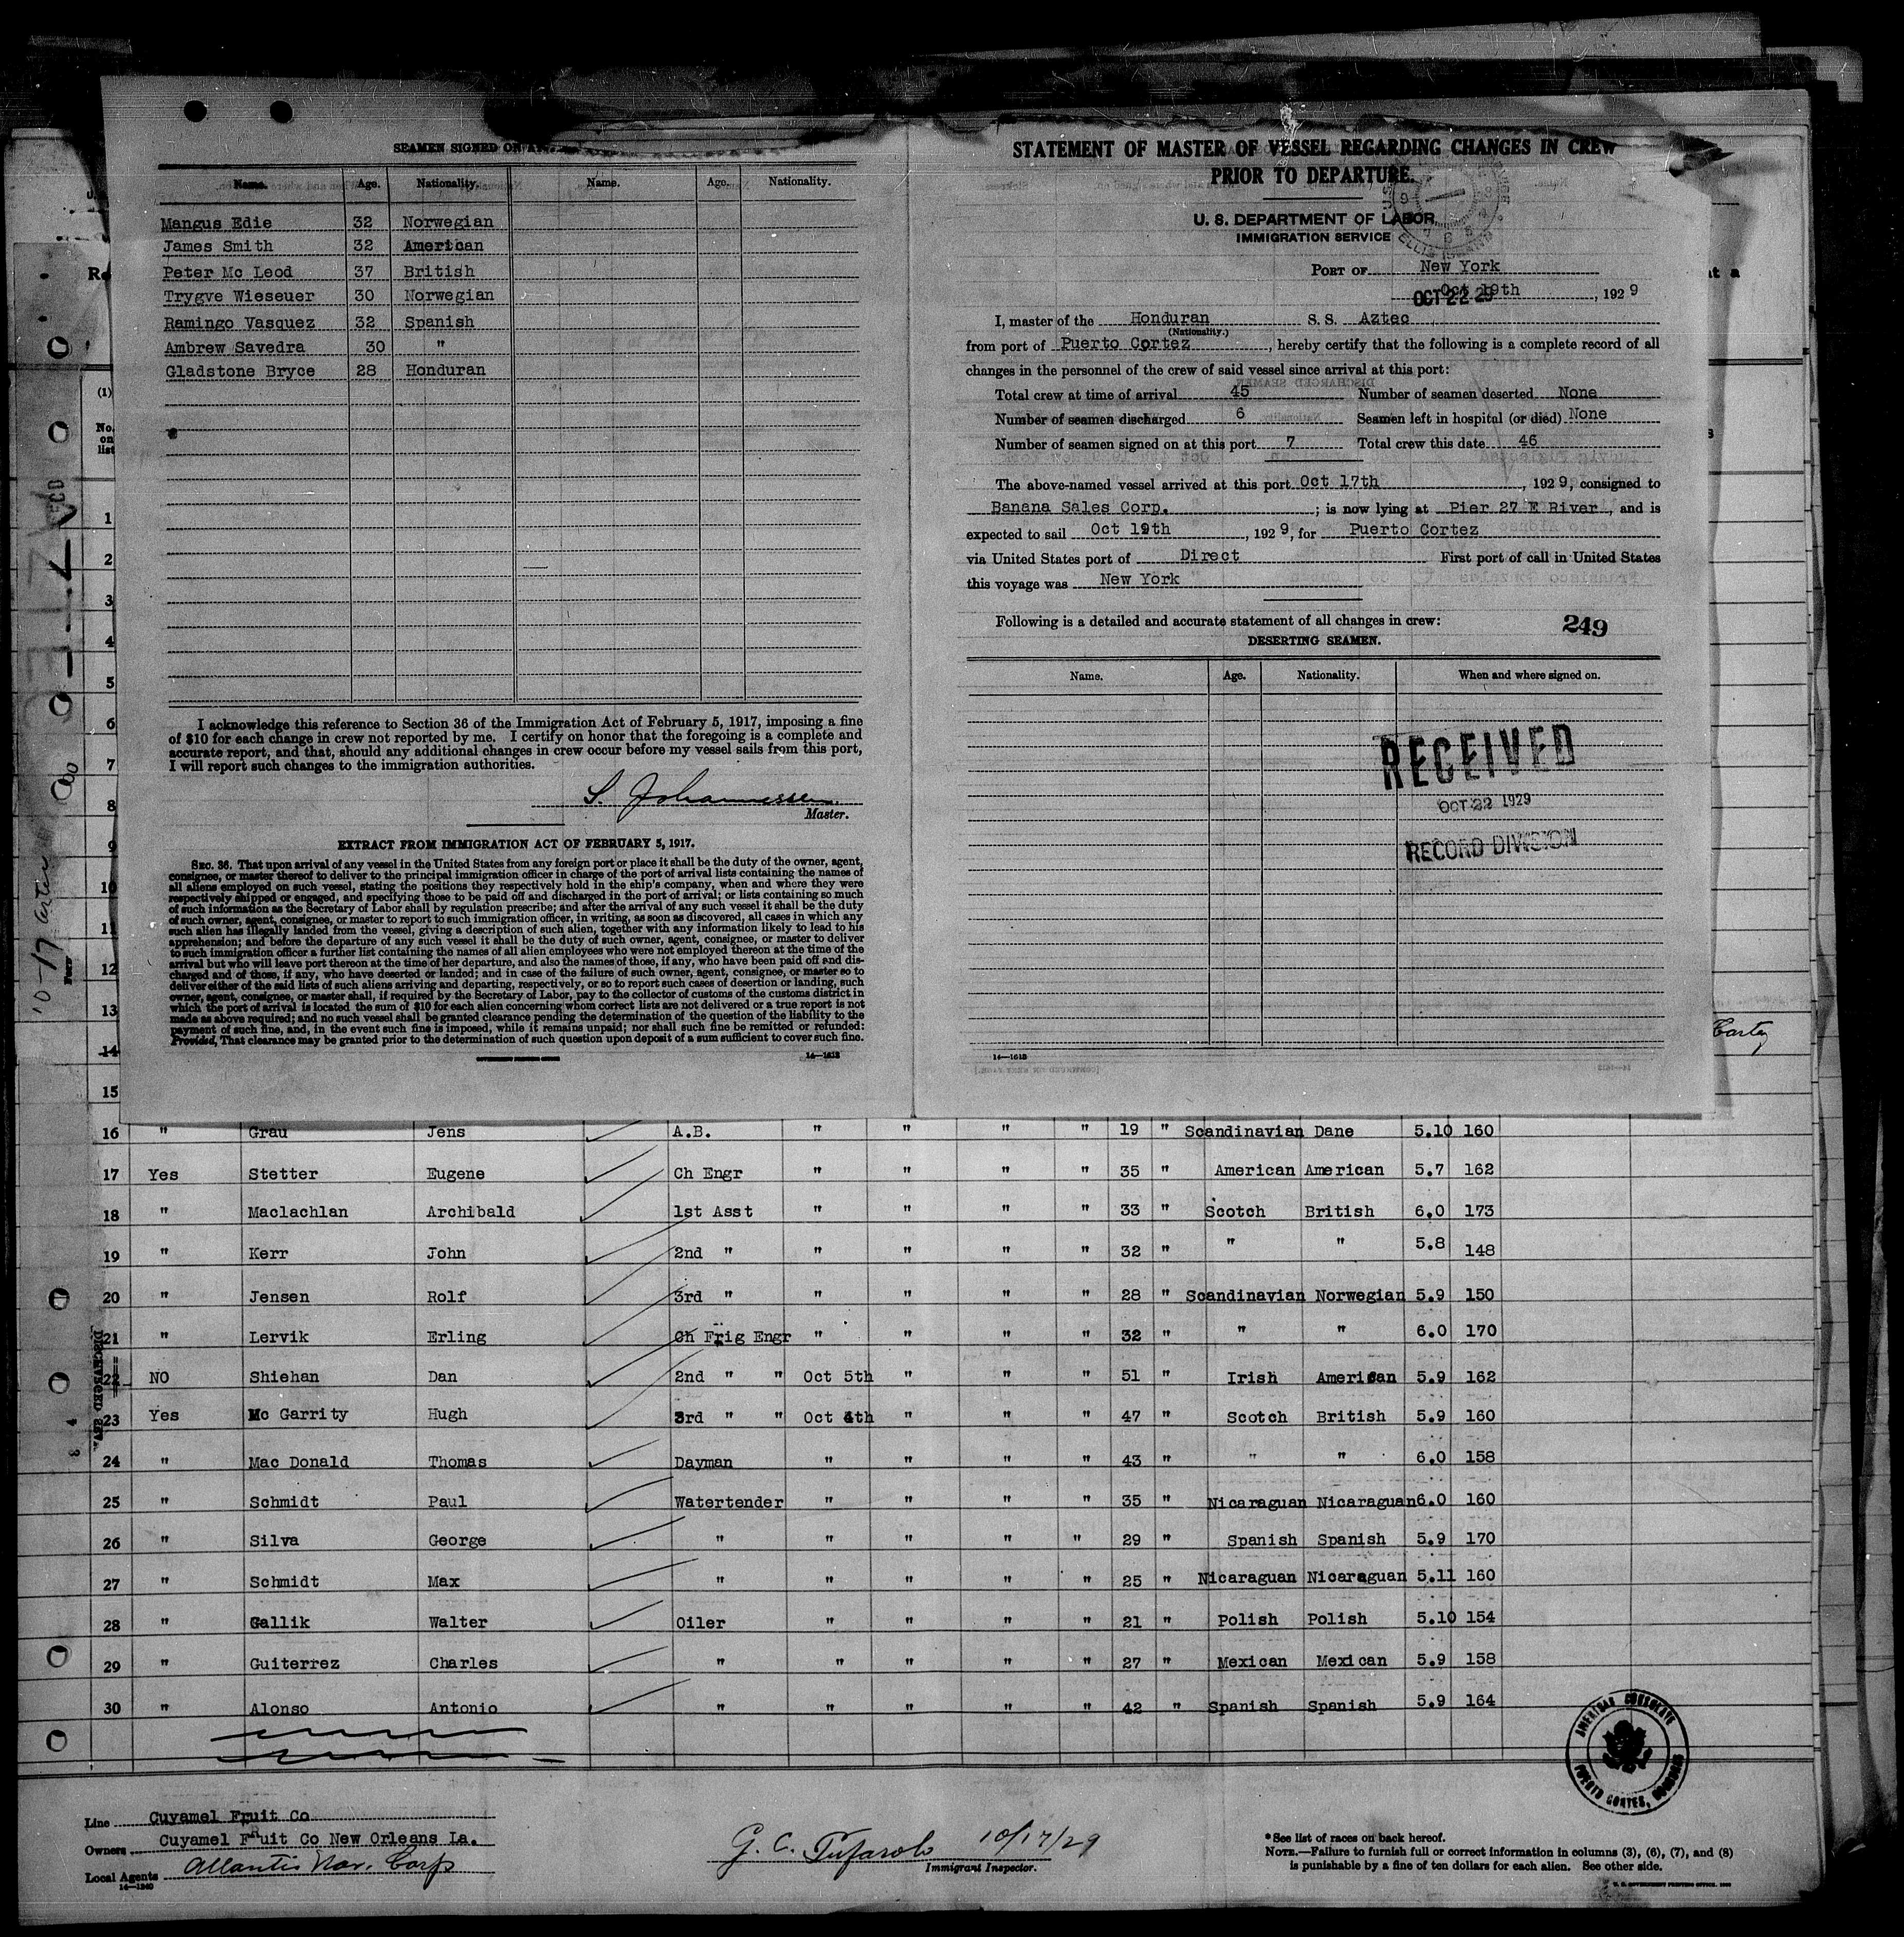 SEAMEN SIGNED ON
Name. Age. Nationality. Name. Age. Nationality.
Mangus Edie 32 Norwegian
James Smith 32 American
Peter Mc Leod 37 British
Trygve Wieseuer 30 Norwegian
Ramingo Vasquez 32 Spanish
Ambrew Savedra 30 "
Gladstone Bryce 28 Honduran
I acknowledge this reference to Section 36 of the Immigration Act of February 5, 1917, imposing a fine
of $10 for each change in crew not reported by me. I certify on honor that the foregoing is a complete and
accurate report, and that, should any additional changes in crew occur before my vessel sails from this port,
I will report such changes to the immigration authorities.
S. Johannessen
Master.
EXTRACT FROM IMMIGRATION ACT OF FEBRUARY 5, 1917.
SEC. 36. That upon arrival of any vessel in the United States from any foreign port or place it shall be the duty of the owner, agent,
consignee, or master thereof to deliver to the principal immigration officer in charge of the port of arrival lists containing the names of
all aliens employed on such vessel, stating the positions they respectively hold in the ship's company, when and where they were
respectively shipped or engaged, and specifying those to be paid off and discharged in the port of arrival; or lists containing so much
of such information as the Secretary of Labor shall by regulation prescribe; and after the arrival of any such vessel it shall be the duty
of such owner, agent, consignee, or master to report to such immigration officer, in writing, as soon as discovered, all cases in which any
such alien has illegally landed from the vessel, giving a description of such alien, together with any information likely to lead to his
apprehension; and before the departure of any such vessel it shall be the duty of such owner, agent, consignee, or master to deliver
to such immigration officer a further list containing the names of all alien employees who were not employed thereon at the time of the
arrival but who will leave port thereon at the time of her departure, and also the names of those, if any, who have been paid off and dis-
charged and of those, if any, who have deserted or landed; and in case of the failure of such owner, agent, consignee, or master so to
deliver either of the said lists of such aliens arriving and departing, respectively, or so to report such cases of desertion or landing, such
owner, agent, consignee, or master shall, if required by the Secretary of Labor, pay to the collector of customs of the customs district in
which the port of arrival is located the sum of $10 for each alien concerning whom correct lists are not delivered or a true report is not
made as above required; and no such vessel shall be granted clearance pending the determination of the question of the liability to the
payment of such fine, and, in the event such fine is imposed, while it remains unpaid; nor shall such fine be remitted or refunded:
Provided, That clearance may be granted prior to the determination of such question upon deposit of a sum sufficient to cover such fine.
GOVERNMENT PRINTING OFFICE 14—1613
STATEMENT OF MASTER OF VESSEL REGARDING CHANGES IN CREW
PRIOR TO DEPARTURE.
U. S. DEPARTMENT OF LABOR
IMMIGRATION SERVICE
PORT OF New York
Oct 19th, 1929
OCT 22 29
I, master of the Honduran S. S. Aztec
(Nationality.)
from port of Puerto Cortez, hereby certify that the following is a complete record of all
changes in the personnel of the crew of said vessel since arrival at this port:
Total crew at time of arrival 45 Number of seamen deserted None
Number of seamen discharged 6 Seamen left in hospital (or died) None
Number of seamen signed on at this port 7 Total crew this date 46
The above-named vessel arrived at this port Oct 17th, 1929, consigned to
Banana Sales Corp. ; is now lying at Pier 27 E River, and is
expected to sail Oct 19th, 1929, for Puerto Cortez
via United States port of Direct First port of call in United States
this voyage was New York
Following is a detailed and accurate statement of all changes in crew: 249
DESERTING SEAMEN.
Name. Age. Nationality. When and where signed on.
RECEIVED
OCT 22 1929
RECORD DIVISION
14—1613
(1)
No. on list
1
2
3
4
5
6
7
8
9
10
11
12
13
14
15
16 " Grau Jens A.B. " " " " 19 " Scandinavian Dane 5.10 160
17 Yes Stetter Eugene Ch Engr " " " " 35 " American American 5.7 162
18 " Maclachlan Archibald 1st Asst " " " " 33 " Scotch British 6.0 173
19 " Kerr John 2nd " " " " " 32 " " " 5.8 148
20 " Jensen Rolf 3rd " " " " " 28 " Scandinavian Norwegian 5.9 150
21 " Lervik Erling Ch Frig Engr " " " " 32 " " " 6.0 170
22 NO Shiehan Dan 2nd " " Oct 5th " " " 51 " Irish American 5.9 162
23 Yes Mc Garrity Hugh 3rd " " Oct 4th " " " 47 " Scotch British 5.9 160
24 " Mac Donald Thomas Dayman " " " " 43 " " " 6.0 158
25 " Schmidt Paul Watertender " " " " 35 " Nicaraguan Nicaraguan 6.0 160
26 " Silva George " " " " " 29 " Spanish Spanish 5.9 170
27 " Schmidt Max " " " " " 25 " Nicaraguan Nicaraguan 5.11 160
28 " Gallik Walter Oiler " " " " 21 " Polish Polish 5.10 154
29 " Guiterrez Charles " " " " " 27 " Mexican Mexican 5.9 158
30 " Alonso Antonio " " " " " 42 " Spanish Spanish 5.9 164
AMERICAN CONSULATE
PUERTO CORTES, HONDURAS
Line Cuyamel Fruit Co
Owners Cuyamel Fruit Co New Orleans La.
Local Agents Atlantic Nav. Corp
14—1240
G. C. Tufarolo 10/17/29
Immigrant Inspector.
*See list of races on back hereof.
NOTE.—Failure to furnish full or correct information in columns (3), (6), (7), and (8)
is punishable by a fine of ten dollars for each alien. See other side.